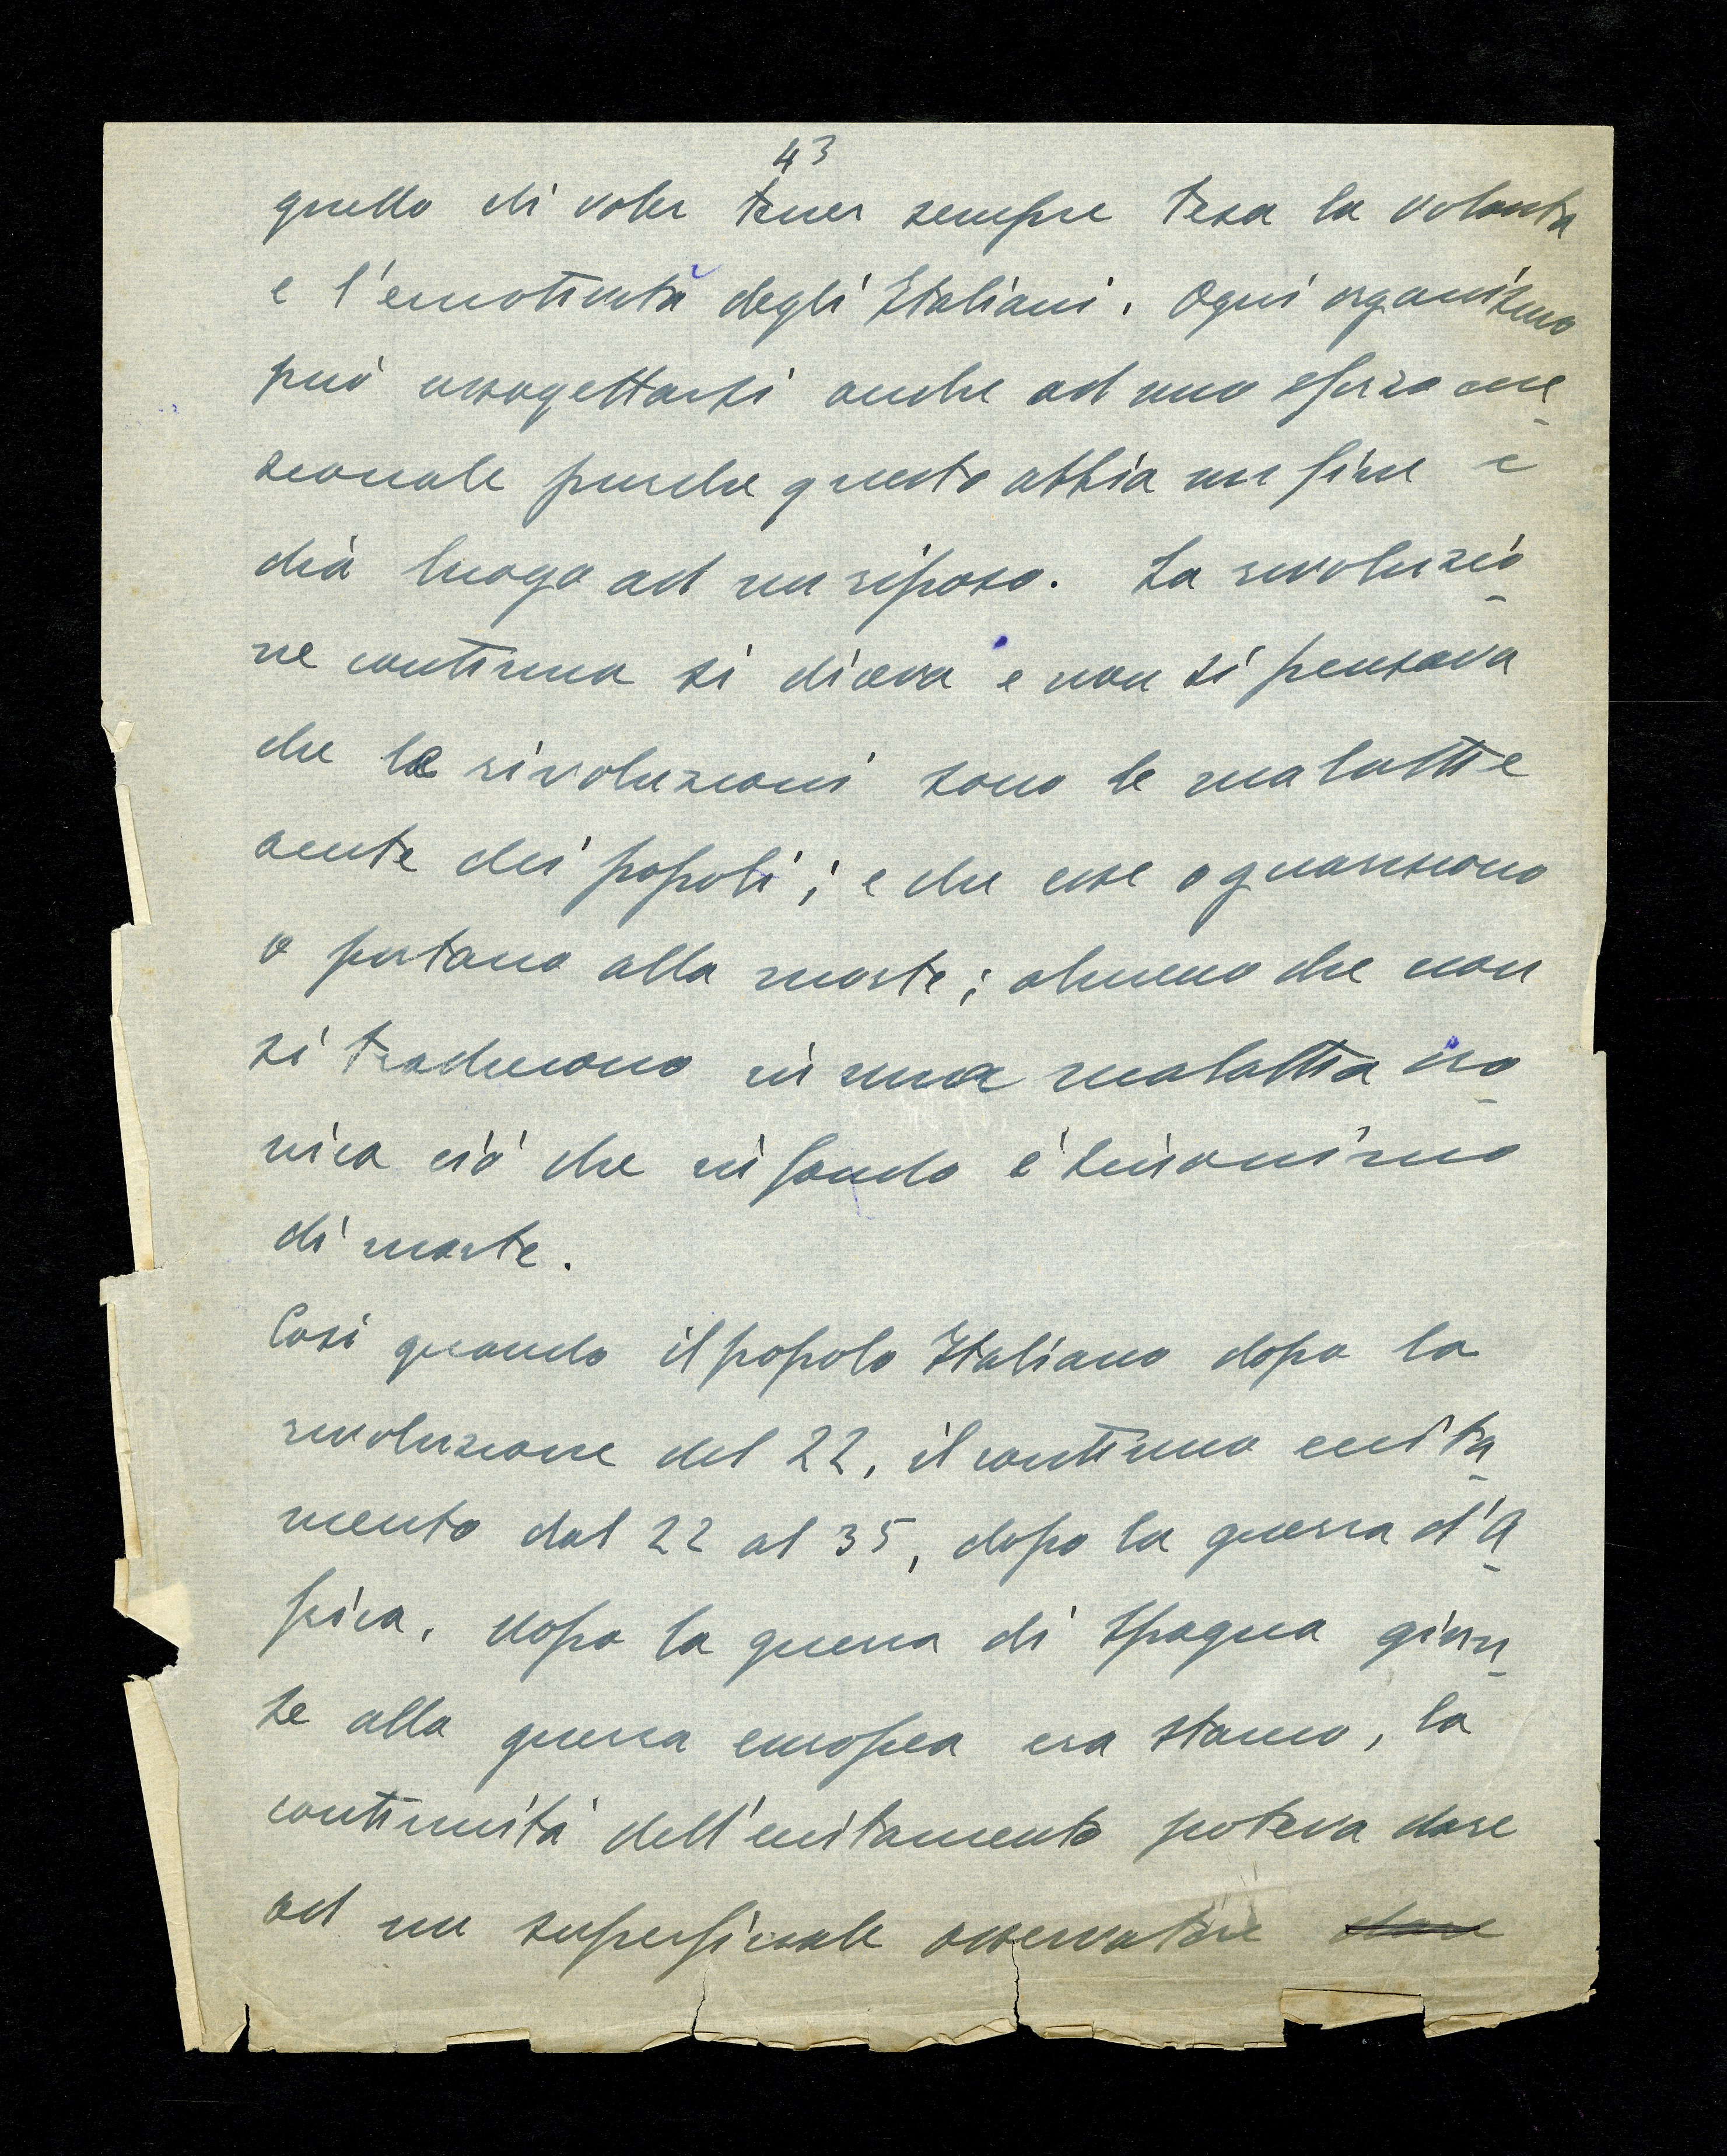 43
quello di voler tener sempre tesa la volontà
e l'emotività degli Italiani. Ogni organismo
può assogettarsi anche ad uno sforzo ecce
zionale purche questo abbia un fine e
dia luogo ad un riposo. La rivoluzio
ne continua si diceva e non si pensava
che le rivoluzioni sono le malattie
acute dei popoli; e che esse o guariscono
o portano alla morte; almeno che non
si traducono in una malattia cro
nica ciò che in fondo è sinonimo
di morte.
Così quando il popolo Italiano dopo la
rivoluzione del 22, il continuo eccita
mento dal 22 al 35, dopo la guerra d'A
frica, dopo la guerra di Spagna giun
se alla guerra europea era stanco, la
continuità dell'eccitamento poteva dare
ad un superficiale osservatore dare